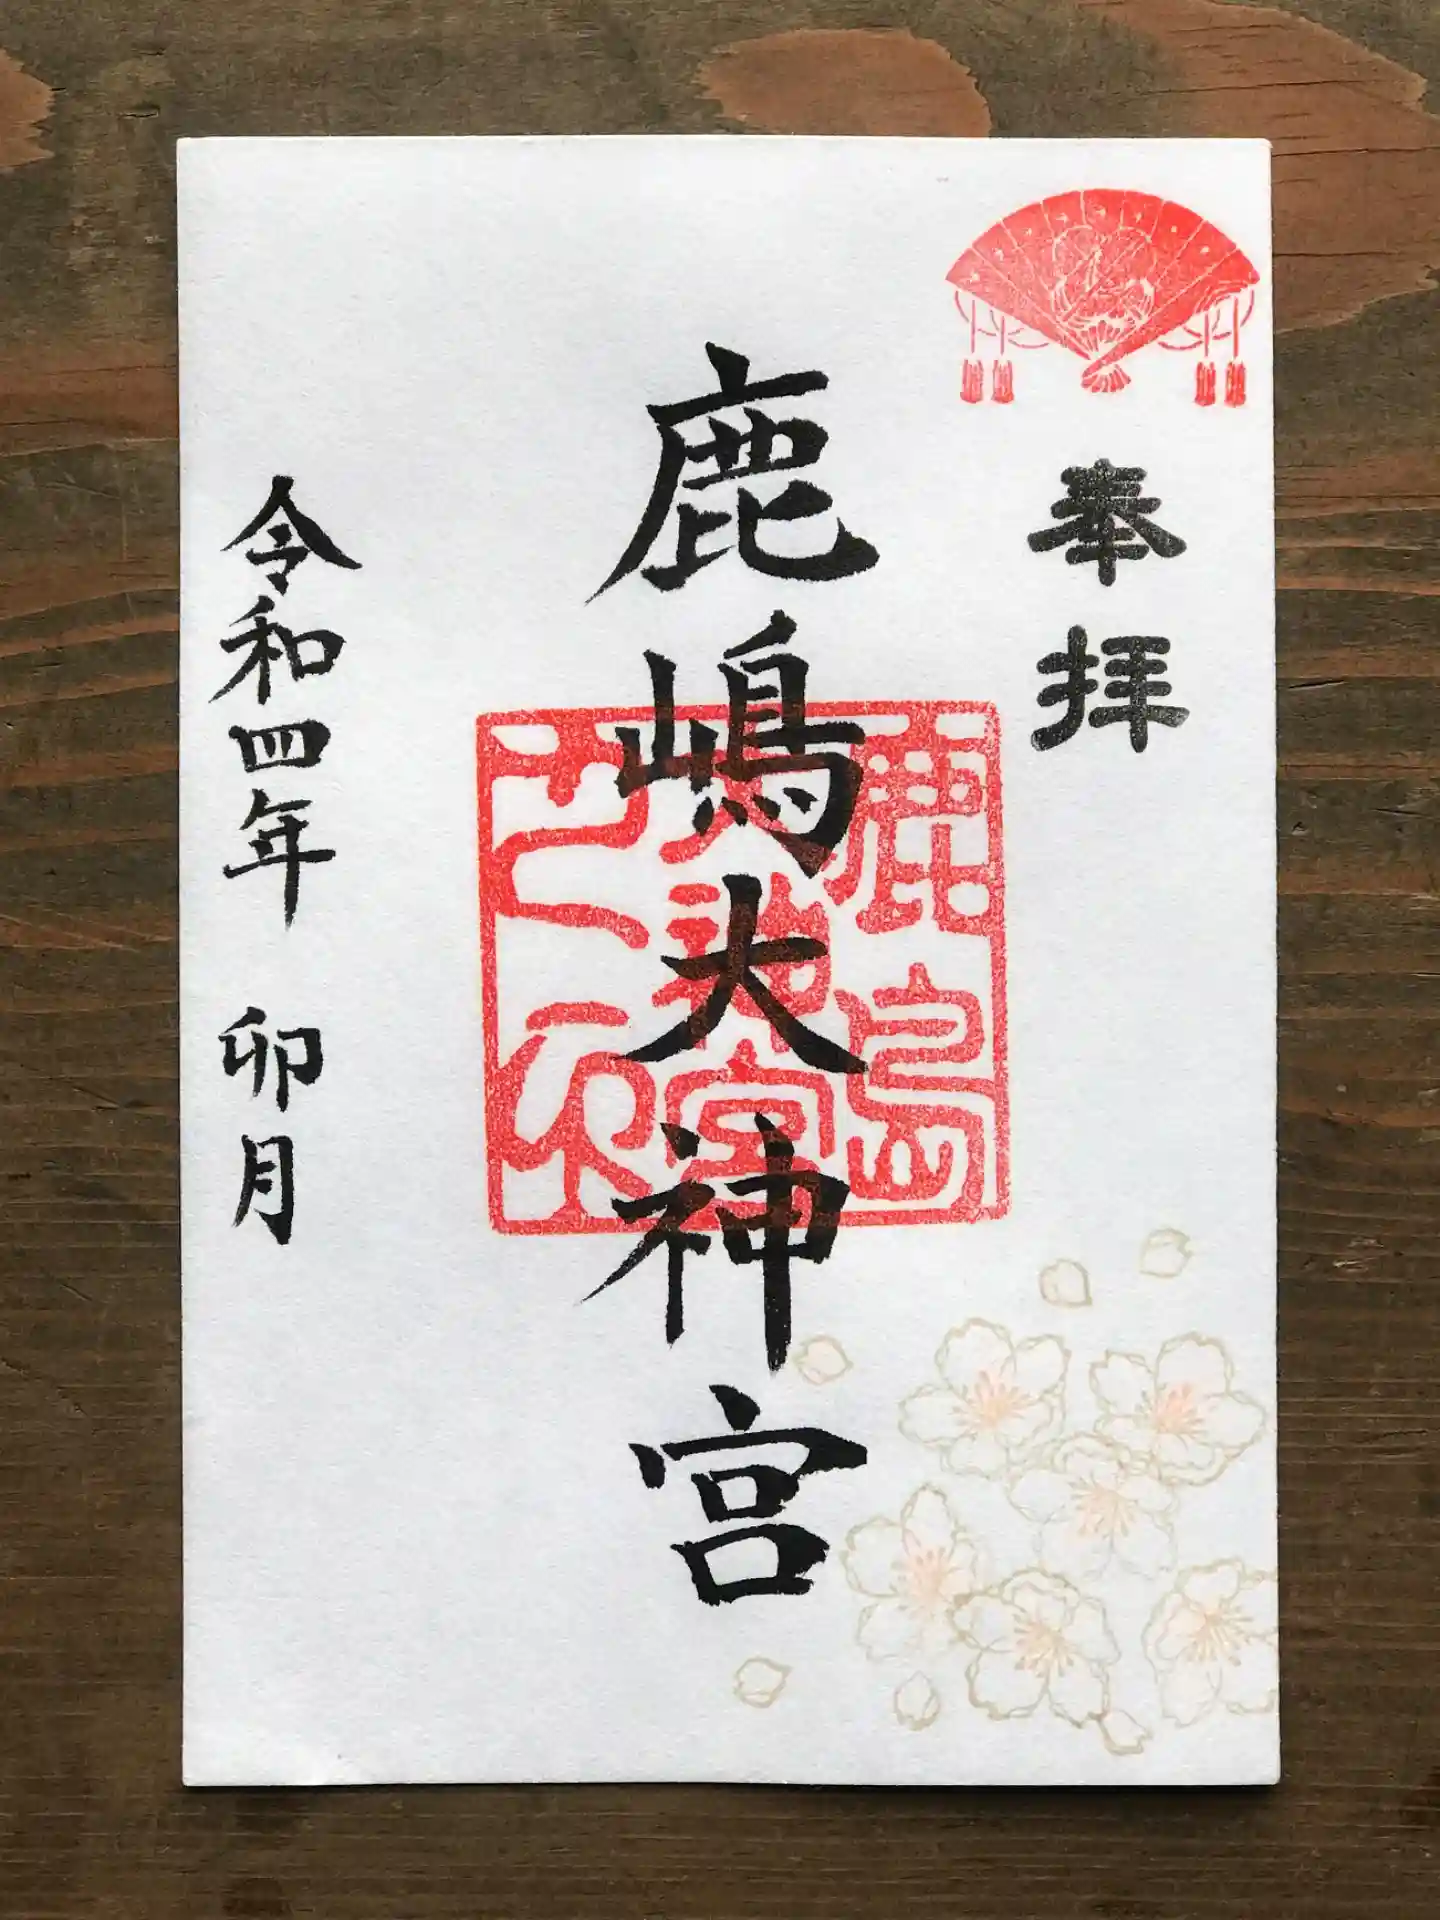 奉拝
鹿嶋大神宮
鹿島
大神宮
之印
令和四年 卯月